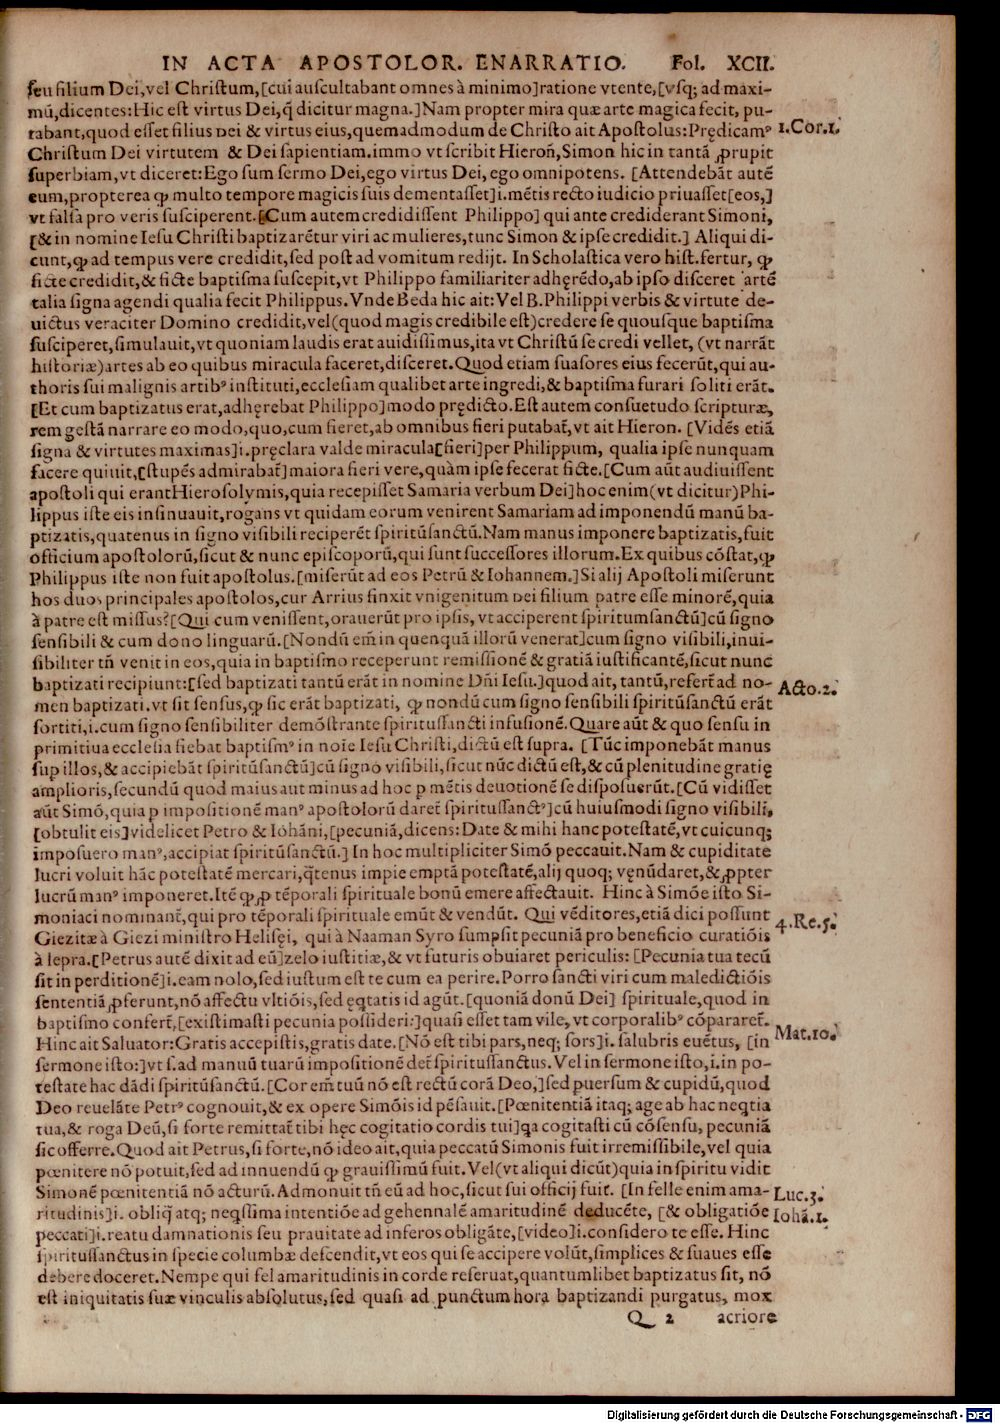 IN ACTA APOSTOLOR. ENARRATIO. Fol. XCII.
seu filium Dei,vel Christum,[cui auscultabant omnes à minimo]ratione vtente,[vsq; ad maxi-
mū,dicentes:Hic est virtus Dei,q̄ dicitur magna.]Nam propter mira quæ arte magica fecit, pu-
tabant,quod esset filius Dei & virtus eius,quemadmodum de Christo ait Apostolus:Prędicamꝰ
1.Cor.1.
Christum Dei virtutem & Dei sapientiam.immo vt scribit Hieroñ,Simon hic in tantā ꝓrupit
superbiam,vt diceret:Ego sum sermo Dei,ego virtus Dei, ego omnipotens. [Attendebāt autē
eum,propterea ꝙ multo tempore magicis suis dementasset]i.mētis recto iudicio priuasset[eos,]
vt falsa pro veris susciperent.[Cum autem credidissent Philippo] qui ante crediderant Simoni,
[& in nomine Iesu Christi baptizarētur viri ac mulieres,tunc Simon & ipse credidit.] Aliqui di-
cunt,ꝙ ad tempus vere credidit,sed post ad vomitum redijt. In Scholastica vero hist.fertur, ꝙ
ficte credidit,& ficte baptisma suscepit,vt Philippo familiariter adhęrēdo,ab ipso disceret artē
talia signa agendi qualia fecit Philippus. Vnde Beda hic ait: Vel B.Philippi verbis & virtute de-
uictus veraciter Domino credidit,vel(quod magis credibile est)credere se quousque baptisma
susciperet,simulauit,vt quoniam laudis erat auidissimus,ita vt Christū se credi vellet, (vt narrāt
historiæ)artes ab eo quibus miracula faceret,disceret.Quod etiam suasores eius fecerūt,qui au-
thoris sui malignis artibꝰ instituti,ecclesiam qualibet arte ingredi,& baptisma furari soliti erāt.
[Et cum baptizatus erat,adhęrebat Philippo]modo prędicto.Est autem consuetudo scripturæ,
rem gestā narrare eo modo,quo,cum fieret,ab omnibus fieri putabat̄,vt ait Hieron. [Vidēs etiā
signa & virtutes maximas]i.pręclara valde miracula[fieri]per Philippum, qualia ipse nunquam
facere quiuit,[stupēs admirabat̄]maiora fieri vere,quàm ipse fecerat ficte.[Cum aūt audiuissent
apostoli qui erant Hierosolymis,quia recepisset Samaria verbum Dei]hoc enim(vt dicitur)Phi-
lippus iste eis insinuauit,rogans vt quidam eorum venirent Samariam ad imponendū manū ba-
ptizatis,quatenus in signo visibili reciperēt spiritūsanctū.Nam manus imponere baptizatis,fuit
officium apostolorū,sicut & nunc episcoporū,qui sunt successores illorum.Ex quibus cōstat,ꝙ
Philippus iste non fuit apostolus.[miserūt ad eos Petrū & Iohannem.]Si alij Apostoli miserunt
hos duos principales apostolos,cur Arrius finxit vnigenitum Dei filium patre esse minorē,quia
à patre est missus?[Qui cum venissent,orauerūt pro ipsis, vt acciperent spiritumsanctū]cū signo
sensibili & cum dono linguarū.[Nondū em̄ in quenquā illorū venerat]cum signo visibili,inui-
sibiliter tn̄ venit in eos,quia in baptismo receperunt remissionē & gratiā iustificantē,sicut nunc
baptizati recipiunt:[sed baptizati tantū erāt in nomine Dn̄i Iesu.]quod ait, tantū,refert̄ ad no-
Acto.2.
men baptizati.vt sit sensus,ꝙ sic erāt baptizati, ꝙ nondū cum signo sensibili spiritūsanctū erāt
sortiti,i.cum signo sensibiliter demōstrante spiritussancti infusionē.Quare aūt & quo sensu in
primitiua ecclesia fiebat baptismꝰ in noīe Iesu Christi,dictū est supra. [Tūc imponebāt manus
sup illos,& accipiebāt spiritūsanctū]cū signo visibili,sicut nūc dictū est,& cū plenitudine gratię
amplioris,secundū quod maius aut minus ad hoc p mētis deuotionē se disposuerūt.[Cū vidisset
aūt Simō,quia p impositionē manꝰ apostolorū daret̄ spiritussanctꝰ]cū huiusmodi signo visibili,
[obtulit eis]videlicet Petro & Iohāni,[pecuniā,dicens:Date & mihi hanc potestatē,vt cuicunq;
imposuero manꝰ,accipiat spiritūsanctū.] In hoc multipliciter Simō peccauit.Nam & cupiditate
lucri voluit hāc potestatē mercari,q̄tenus impie emptā potestatē,alij quoq; vęnūdaret,& ꝓpter
lucrū manꝰ imponeret.Itē ꝙ ꝓ tēporali spirituale bonū emere affectauit. Hinc à Simōe isto Si-
moniaci nominant̄,qui pro tēporali spirituale emūt & vendūt. Qui vēditores,etiā dici possunt
4.Re.5.
Giezitæ à Giezi ministro Helisęi, qui à Naaman Syro sumpsit pecuniā pro beneficio curatiōis
à lepra.[Petrus autē dixit ad eū]zelo iustitiæ,& vt futuris obuiaret periculis: [Pecunia tua tecū
sit in perditionē]i.eam nolo,sed iustum est te cum ea perire.Porro sancti viri cum maledictiōis
sententiā ꝓferunt,nō affectu vltiōis,sed ęq̄tatis id agūt.[quoniā donū Dei] spirituale,quod in
baptismo confert̄,[existimasti pecunia possideri:]quasi esset tam vile, vt corporalibꝰ cōpararet̄.
Mat.10.
Hinc ait Saluator:Gratis accepistis,gratis date.[Nō est tibi pars,neq; sors]i. salubris euētus, [in
sermone isto:]vt s.ad manuū tuarū impositionē det̄ spiritussanctus. Vel in sermone isto,i.in po-
testate hac dādi spiritūsanctū.[Cor em̄ tuū nō est rectū corā Deo,]sed puersum & cupidū,quod
Deo reuelāte Petrꝰ cognouit,& ex opere Simōis id pēsauit.[Pœnitentiā itaq; age ab hac neq̄tia
tua,& roga Deū,si forte remittat̄ tibi hęc cogitatio cordis tui]q̄a cogitasti cū cōsensu, pecuniā
sic offerre.Quod ait Petrus,si forte,nō ideo ait,quia peccatū Simonis fuit irremissibile,vel quia
pœnitere nō potuit,sed ad innuendū ꝙ grauissimū fuit. Vel(vt aliqui dicūt)quia in spiritu vidit
Simonē pœnitentiā nō acturū.Admonuit tn̄ eū ad hoc,sicut sui officij fuit. [In felle enim ama-
Luc.3.
ritudinis]i. obliq̄ atq; neq̄ssima intentiōe ad gehennalē amaritudinē deducēte, [& obligatiōe
Iohā.1.
peccati]i.reatu damnationis seu prauitate ad inferos obligāte,[video]i.considero te esse. Hinc
spiritussanctus in specie columbæ descendit,vt eos qui se accipere volūt,simplices & suaues esse
debere doceret.Nempe qui fel amaritudinis in corde reseruat,quantumlibet baptizatus sit, nō
est iniquitatis suæ vinculis absolutus,sed quasi ad punctum hora baptizandi purgatus, mox
Q 2 acriore
Digitalisierung gefördert durch die Deutsche Forschungsgemeinschaft - DFG